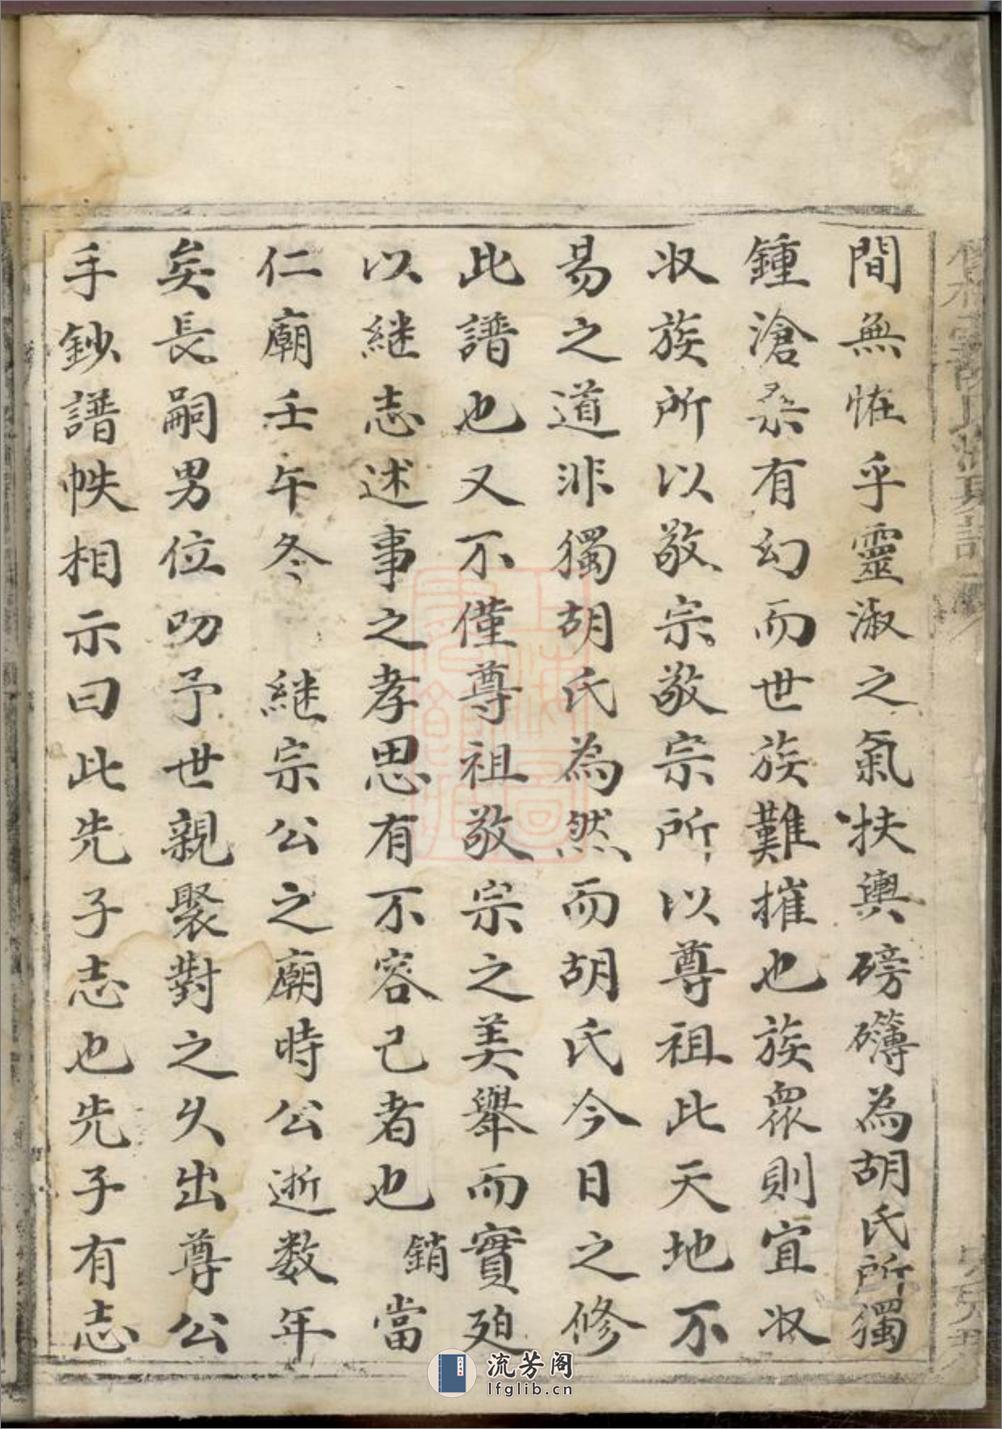 間無恠乎靈淑之氣扶輿磅礴為胡氏所獨
鍾滄桑有幻而世族難摧也族眾則宜収
収族所以敬宗敬宗所以尊祖此天地不
易之道非獨胡氏為然而胡氏今日之修
此譜也又不僅尊祖敬宗之美舉而實殆
以継志述事之孝思有不容已者也銷當
仁廟壬午冬 継宗公之廟時公逝数年
矣長嗣男位叨予世親聚對之乆出尊公
手鈔譜帙相示曰此先子志也先子有志
流芳阁
lfglib.cn